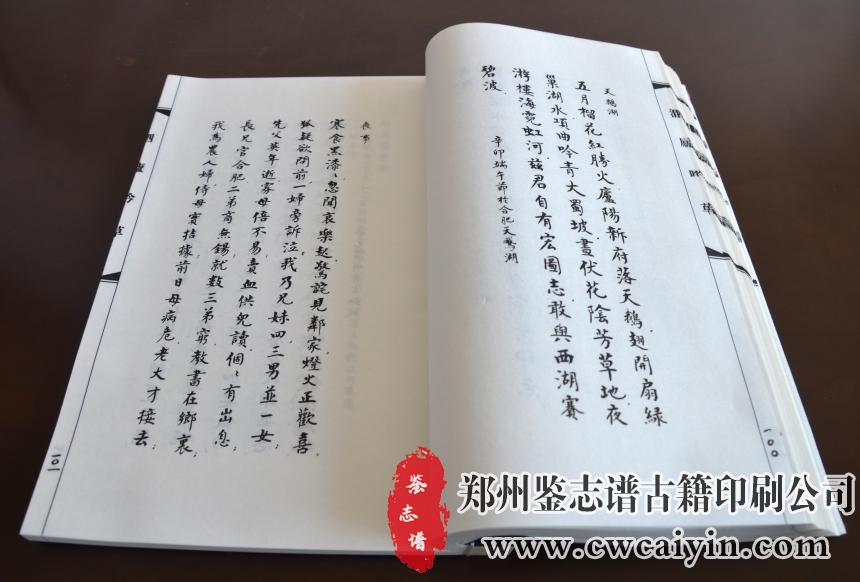 天鵝湖
五月榴花紅勝火廬陽新府落天鵝翅開扇綠
巢湖水項曲吟青大蜀坡晝伏花陰芳草地夜
游樓海霓虹河茲君自有宏圖志敢與西湖賽
碧波
辛卯端午節於合肥天鵝湖
一〇〇
喪事
寒食黑漆漆忽聞哀樂起驚詫見鄰家燈火正歡喜
狐疑欲問前一婦旁訴泣我乃兄妹四三男並一女
先父英年逝寡母倍不易賣血供兒讀個個有出息
長兄官合肥二弟商無錫就數三弟窮教書在鄉裏
我為農人婦侍母實拮據前日母病危老大才接去
一〇一
鉴志谱
郑州鉴志谱古籍印刷公司
www.cwcaiyin.com